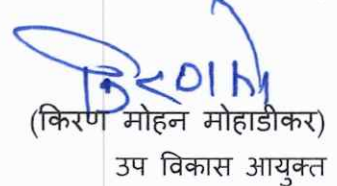 किरण
(किरण मोहन मोहाडीकर)
उप विकास आयुक्त